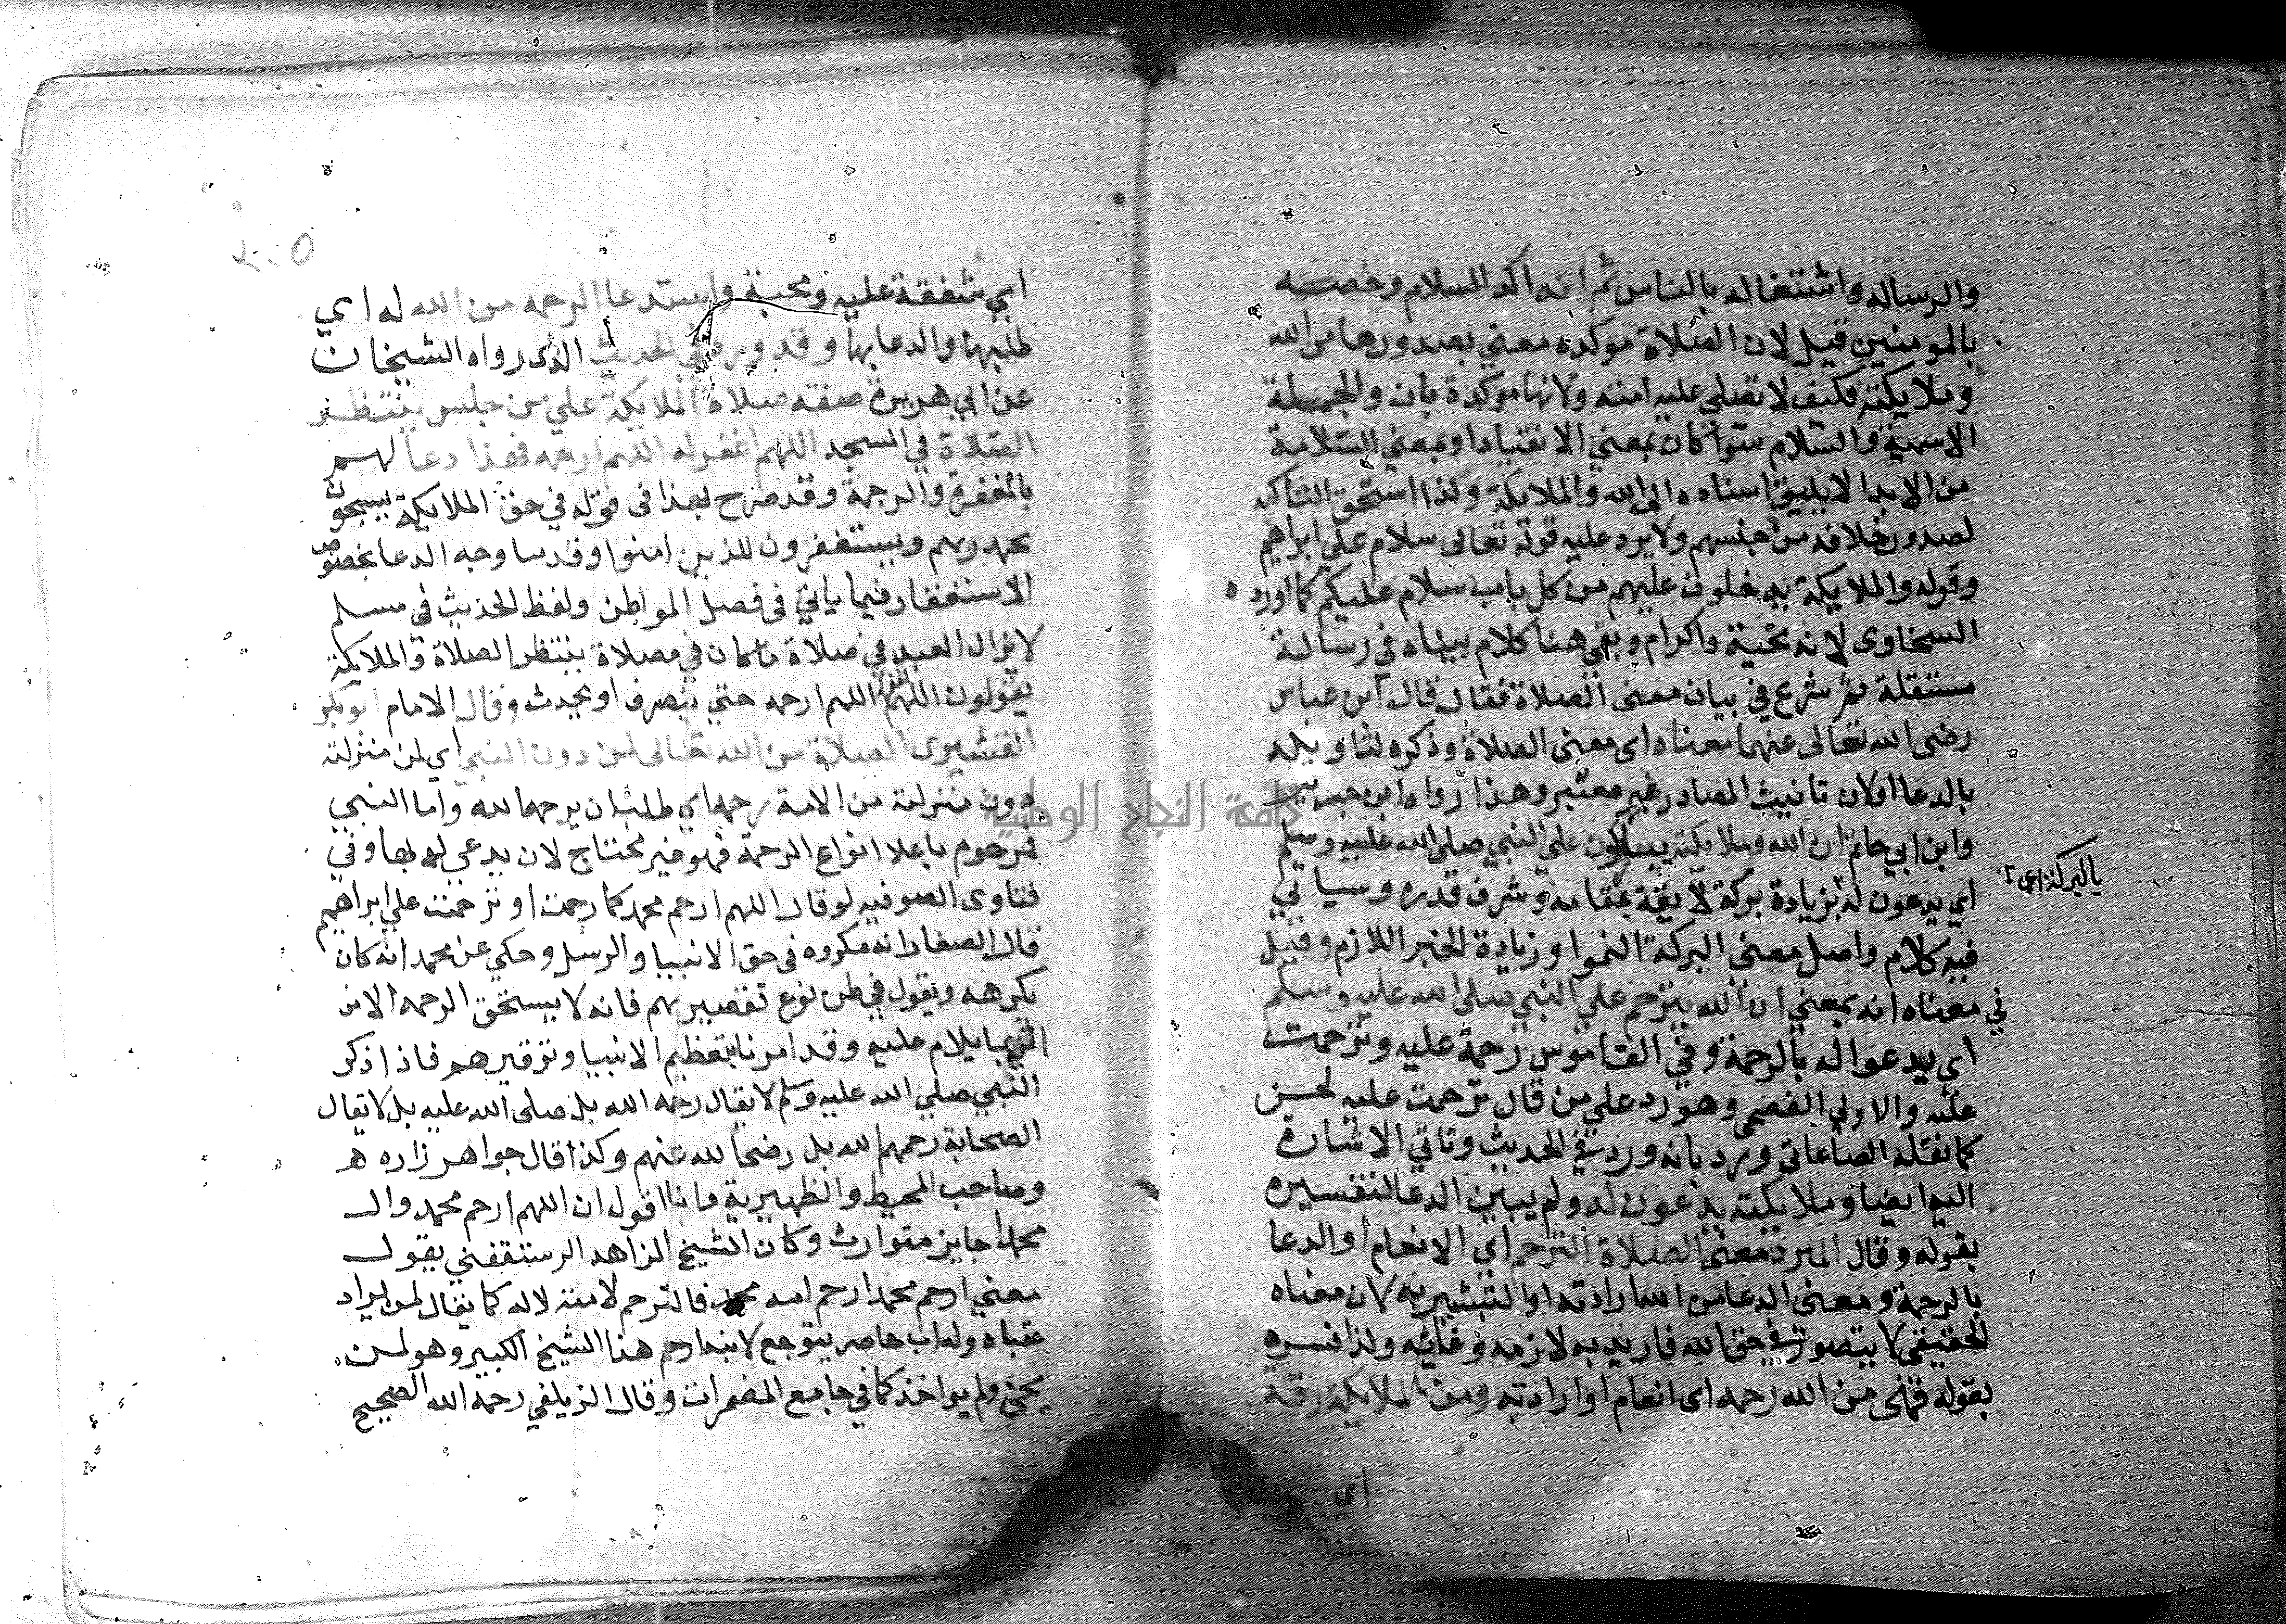 والرساله واشتغاله بالناس ثم انه اكد السلام وخصه
بالمومنين قيل لان الصلاة موكده معني بصدورها من الله
وملايكته فكيف لا تصلي عليه امته ولانها موكدة بان والجملة
الاسمية والسلام سوا كان بمعني الانقياد او بمعني السلامة
من الايذا لا يليق اسناده الى الله والملايكة ولذا استحق التاكيد
لصدور خلافه من جنسهم ولا يرد عليه قوله تعالى سلام علي ابراهيم
وقوله والملايكة يدخلون عليهم من كل باب سلام عليكم كما اورده
السخاوى لانه تحية واكرام وبقي هنا كلام بيناه في رسالة
مستقلة ثم شرع في بيان معنى الصلاة فقال قال ابن عباس
رضى الله تعالى عنهما معناه اى معنى الصلاة وذكره لتاويله
بالدعا اولان تانيث المصادر غير معتبر وهذا رواه ابن جرير
وابن ابي حاتم ان الله وملايكته يباركون علي النبي صلى الله عليه وسلم
اي يدعون له بزيادة بركة لايقة بمقامه وشرف قدره وسياتي
بالبركة اى
فيه كلام واصل معنى البركة النموا وزيادة الخير اللازم وقيل
في معناه انه بمعني ان الله يترحم علي النبي صلى الله عليه وسلم
اى يدعوا له بالرحمة وفي القاموس رحمة عليه وترحمت
عليه والاولي الفصحى وهو رد على من قال ترحمت عليه لحن
كما نقله الصاغاني ورد بانه ورد في الحديث وتاتي الاشارة
اليه ايضا وملايكته يدعون له ولم يبين الدعا لتفسيره
بقوله وقال المبرد معنى الصلاة الترحم اى الانعام او الدعا
بالرحمة ومعنى الدعا من الله ارادته او التبشير به لان معناه
الحقيقي لا يتصور في حق الله فاريد به لازمه وغايته ولذا فسره
بقوله فهى من الله رحمه اى انعام او ارادته ومن الملايكة رقة
اي
٢٠٥
اي شفقة عليه ومحبة واستدعا الرحمه من الله له اي
طلبها والدعا بها وقد ورد في الحديث الذى رواه الشيخان
عن ابي هريرة صفة صلاة الملايكة علي من جلس ينتظر
الصلاة في المسجد اللهم اغفر له اللهم ارحمه فهذا دعا لهم
بالمغفرة والرحمة وقد صرح بهذا فى قوله في حق الملايكة يسبحون
بحمد ربهم ويستغفرون للذين امنوا وقدسا وجه الدعا بخصوص
الاستغفار فيما ياتي فى فصل المواطن ولفظ الحديث في مسلم
لا يزال العبد في صلاة ما كان في مصلاة ينتظر الصلاة والملايكة
يقولون اللهم اغفر له اللهم ارحمه حتي ينصرف او يحدث وقال الامام ابو بكر
القشيرى الصلاة من الله تعالى لمن دون النبي اي لمن منزلته
دون منزلته من الامة رحمه اي طلب ان يرحمه الله واما النبي
فمرحوم باعلا انواع الرحمة فهو غير محتاج لان يدعى له بها وفي
فتاوى الصوفيه لو قال اللهم ارحم محمد كما رحمت او ترحمت علي ابراهيم
قال الصفار انه مكروه فى حق الانبيا والرسل وحكي عن محمد انه كان
يكرهه ويقول في ظن نوع تقصير بهم فانه لا يستحق الرحمه الا من
اتى بما يلام عليه وقد امرنا بتعظيم الانبيا وتوقيرهم فاذا ذكر
النبي صلي الله عليه وسلم لا يقال رحمه الله بل صلى الله عليه بل لا يقال
الصحابة رحمهم الله بل رضى الله عنهم وكذا قال جواهر زاره
وصاحب المحيط والظهيرية وانا اقول ان اللهم ارحم محمد وال
محمد جايز متوارث وكان الشيخ الزاهد الرستغفني يقول
معني ارحم محمد ارحم امة محمد فالترحم لامته لا له كما يقال لمن يراد
عقباه وله اب حاصر يتوجع لابنه ارحم هذا الشيخ الكبير وهو لمن
يجن ولم يواخذ كما في جامع المضمرات وقال الزيلعي رحمه الله الصحيح